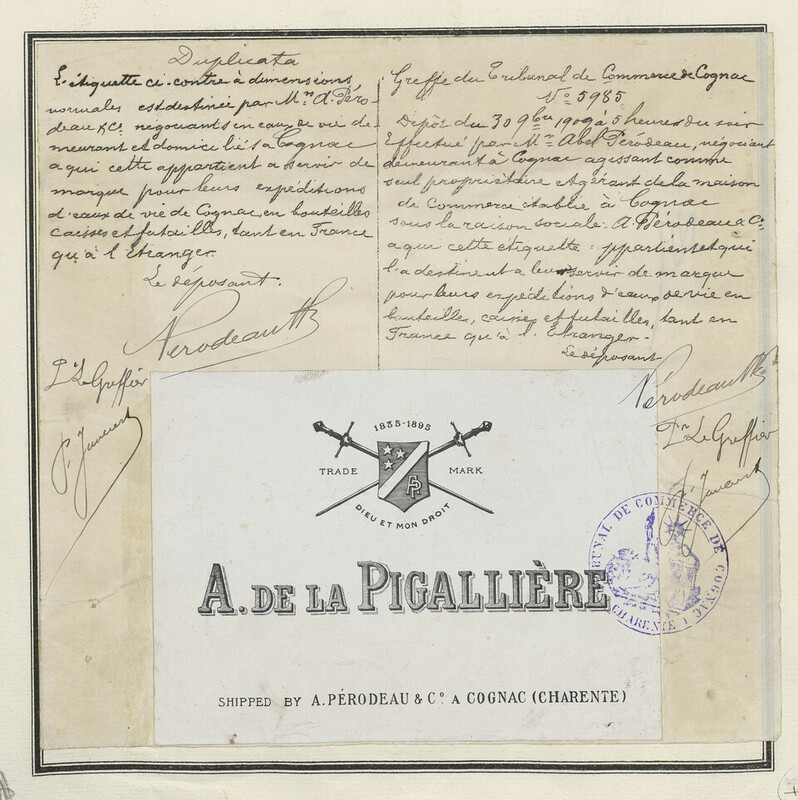 Duplicata
L'étiquette ci-contre à dimensions
normales est destinée par Mrs A. Péro-
deau & Co négociants en eaux de vie de-
meurant et domiciliés à Cognac
a qui cette appartient a servir de
marque pour leurs expéditions
d'eaux de vie de Cognac, en bouteilles
caisses et futailles, tant en France
qu'à l'Étranger.
Le déposant.
Pérodeau
Pr Le Greffier
Greffe du Tribunal de Commerce de Cognac
No 5985
Dépôt du 30 9bre 1909 à 5 heures du soir
Effectué par Mr Abel Pérodeau, négociant
demeurant à Cognac agissant comme
seul propriétaire et gérant de la maison
de Commerce établie à Cognac
sous la raison sociale: A. Pérodeau & Co
a qui cette étiquette appartient et qui
l'a destinent a leur servir de marque
pour leurs expéditions d'eaux de vie en
bouteilles, caisses et futailles, tant en
France qu'à l'Étranger.
Le déposant
Pérodeau
Pr Le Greffier
1835-1895
TRADE MARK
AP
DIEU ET MON DROIT
A. DE LA PIGALLIÈRE
SHIPPED BY A. PÉRODEAU & Co A COGNAC (CHARENTE)
TRIBUNAL DE COMMERCE DE COGNAC
(CHARENTE)